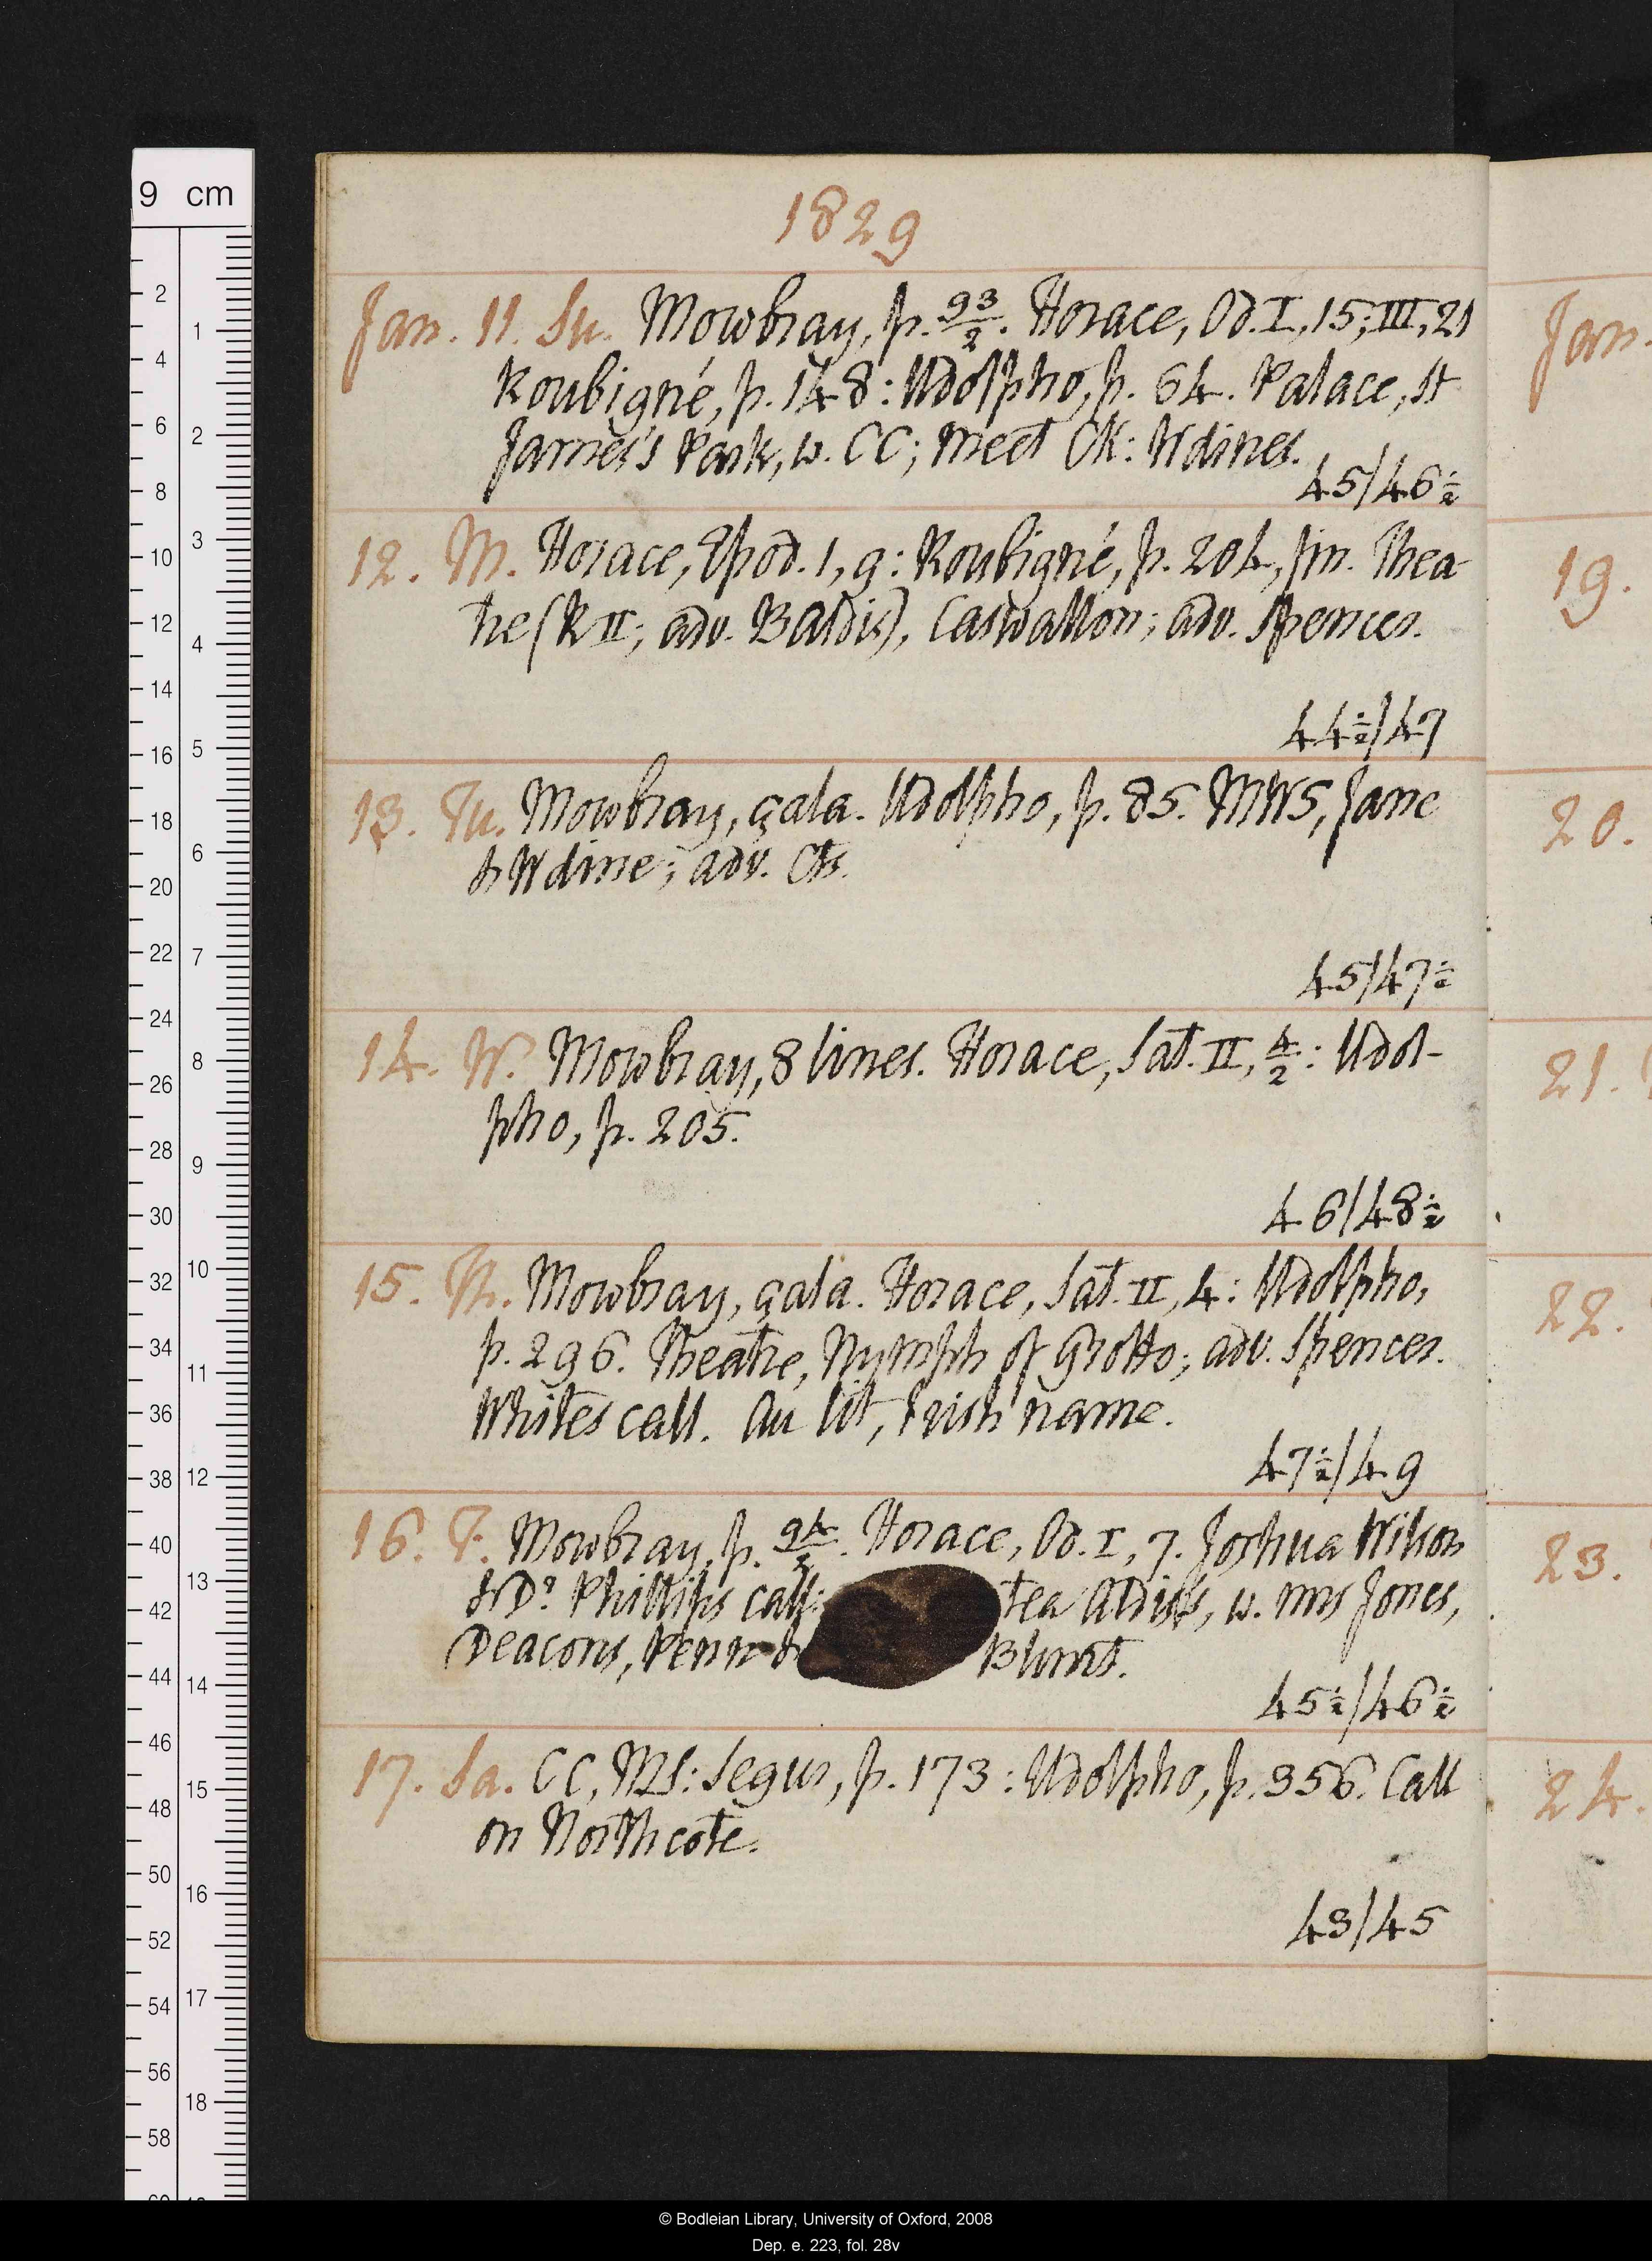 9 cm
1829
Jan. 11. Su. Mowbray, p. 93/2. Horace, Od. I, 15; III, 21
Roubigné, p. 148: Udolpho, p. 64. Palace, St
James's Park, w. CC; meet CK: W dines.
45/46½
12. M. Horace, Epod. 1, 9: Roubigné, p. 204, fin. Thea-
tre (R II; adv. Baldis), Caswallon; adv. Spences.
44½/47
13. Tu. Mowbray, çala. Udolpho, p. 85. MWS, Jane
& W dine; adv. Cts.
45/47½
14. W. Mowbray, 8 lines. Horace, Sat. II, 4/2: Udol-
pho, p. 205.
46/48½
15. Th. Mowbray, çala. Horace, Sat. II, 4: Udolpho,
p. 296. Theatre, Nymph of Grotto; adv. Spences.
Whites call. Au lit, Irish name.
47½/49
16. F. Mowbray, p. 94/2. Horace, Od. I, 7. Joshua Wilson
& Dr Phillips call: tea Aldiss, w. mrs Jones,
Deacons, Penn & Blunt.
45½/46½
17. Sa. CC, MS: Segur, p. 173: Udolpho, p. 356. Call
on Northcote.
43/45
Jan.
19.
20.
21.
22.
23.
24.
© Bodleian Library, University of Oxford, 2008
Dep. e. 223, fol. 28v